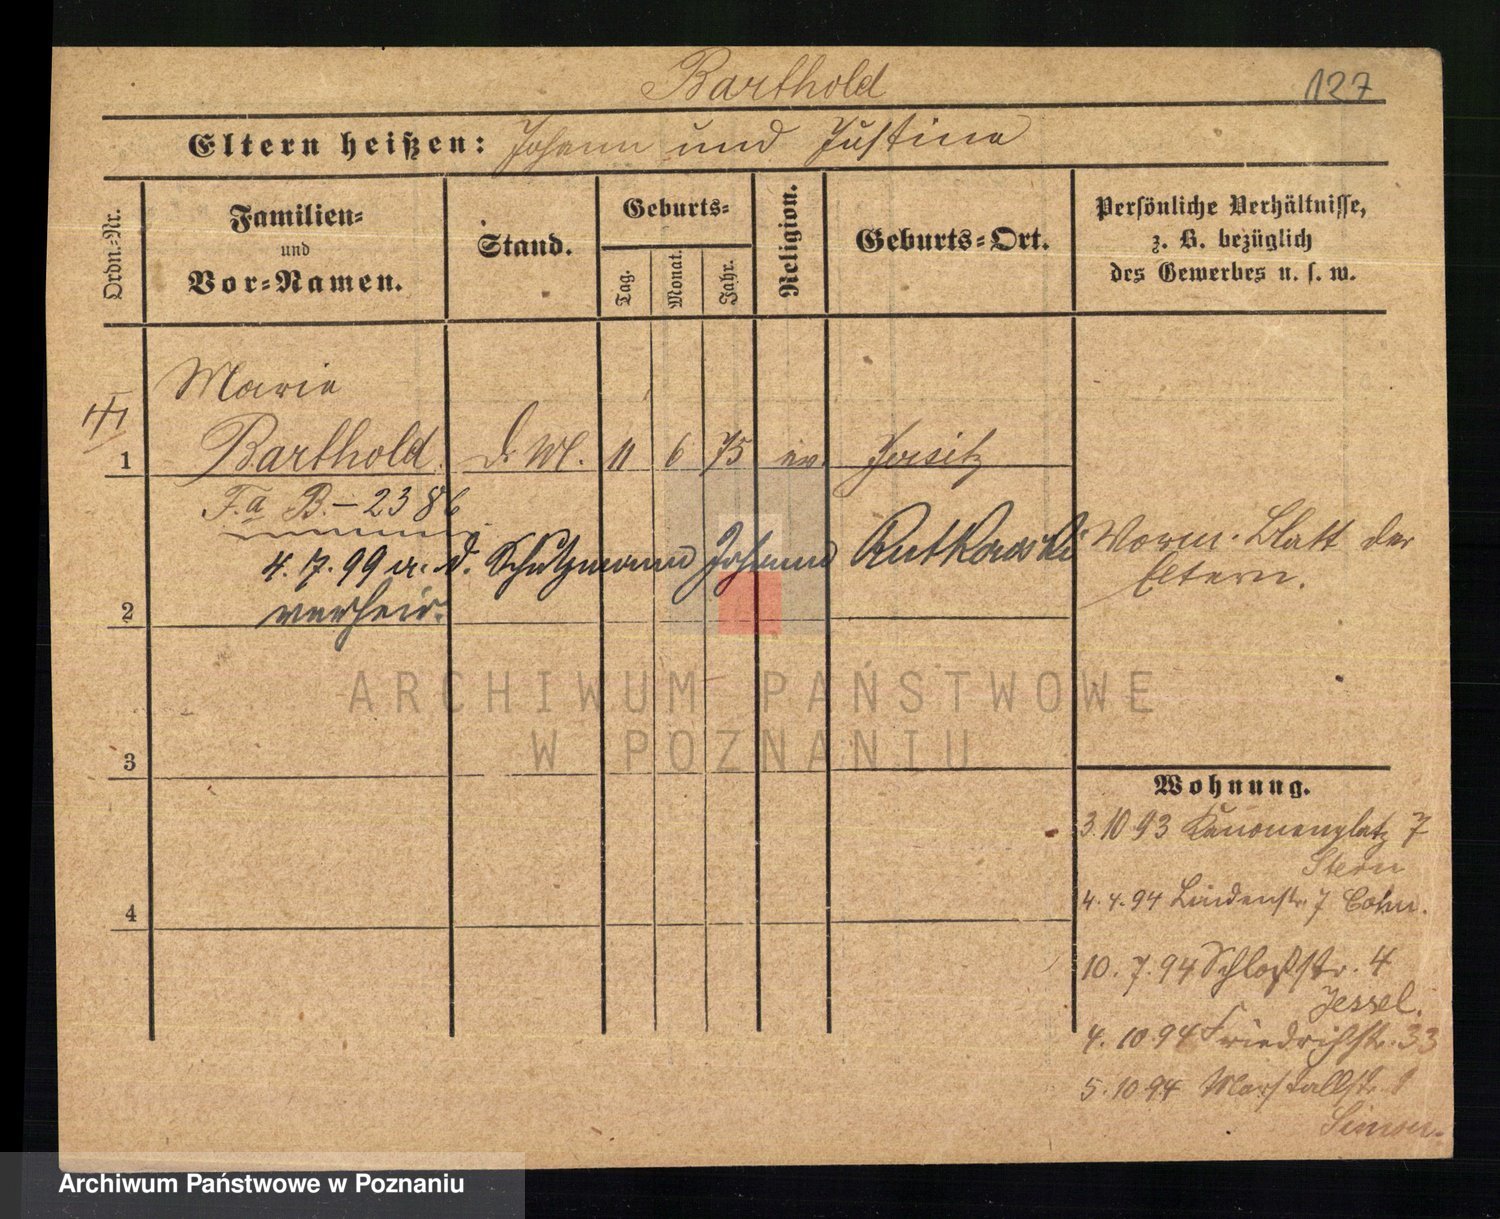 Barthold
127
Eltern heißen: Johann und Justine
Ordn.-Nr.
Familien-
und
Vor-Namen.
Stand.
Geburts-
Tag.
Monat.
Jahr.
Religion.
Geburts-Ort.
Persönliche Verhältnisse,
z. B. bezüglich
des Gewerbes u. s. w.
Marie
1 Barthold. 11 6 75 ev. Jersitz
F.a B.- 2386
4.7.99 a. d. Schutzmann Johann Rutkowski
2 verheir.
Worm. Blatt der
Eltern.
3
4
Wohnung.
3.10 93 Kanonenplatz 7
Stern
4.4.94 Lindenstr. 7 Cohn.
10.7.94 Schloßstr. 4
Jessel.
4.10.94 Friedrichstr. 33
5.10 94 Marstallstr.
Simon.
ARCHIWUM PAŃSTWOWE
W POZNANIU
Archiwum Państwowe w Poznaniu